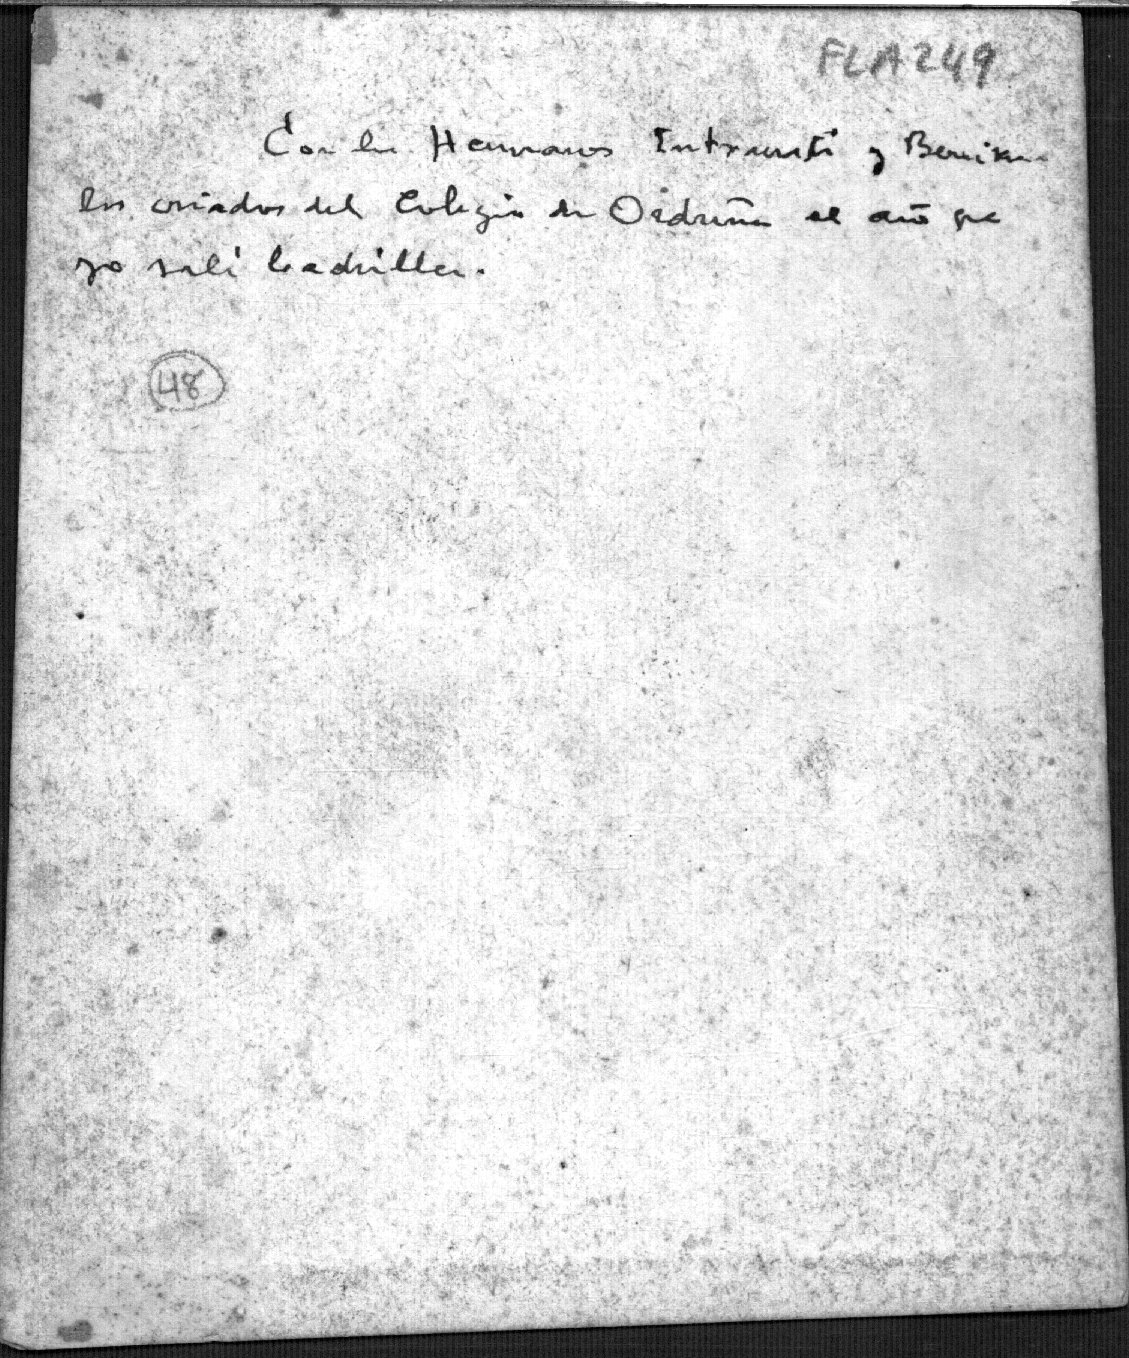 FLA249
Con los Hermanos Intxausti y
los criados del Colegio de Orduña el año que
yo salí bachiller.
48